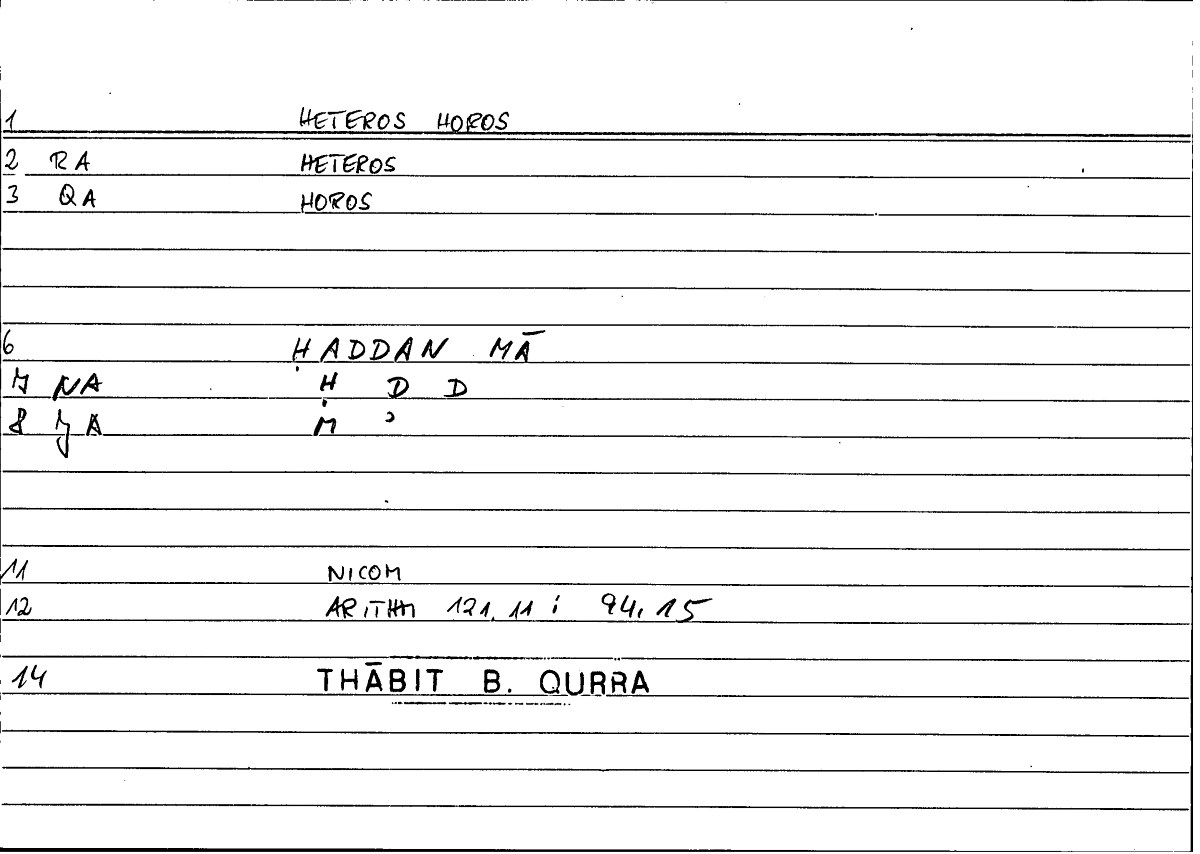 1 HETEROS HOROS
2 RA HETEROS
3 QA HOROS
6 ḤADDAN MĀ
7 NA Ḥ D D
8 JA M ʾ
11 NICOM
12 ARITHM 121, 11 ; 94, 15
14 THĀBIT B. QURRA